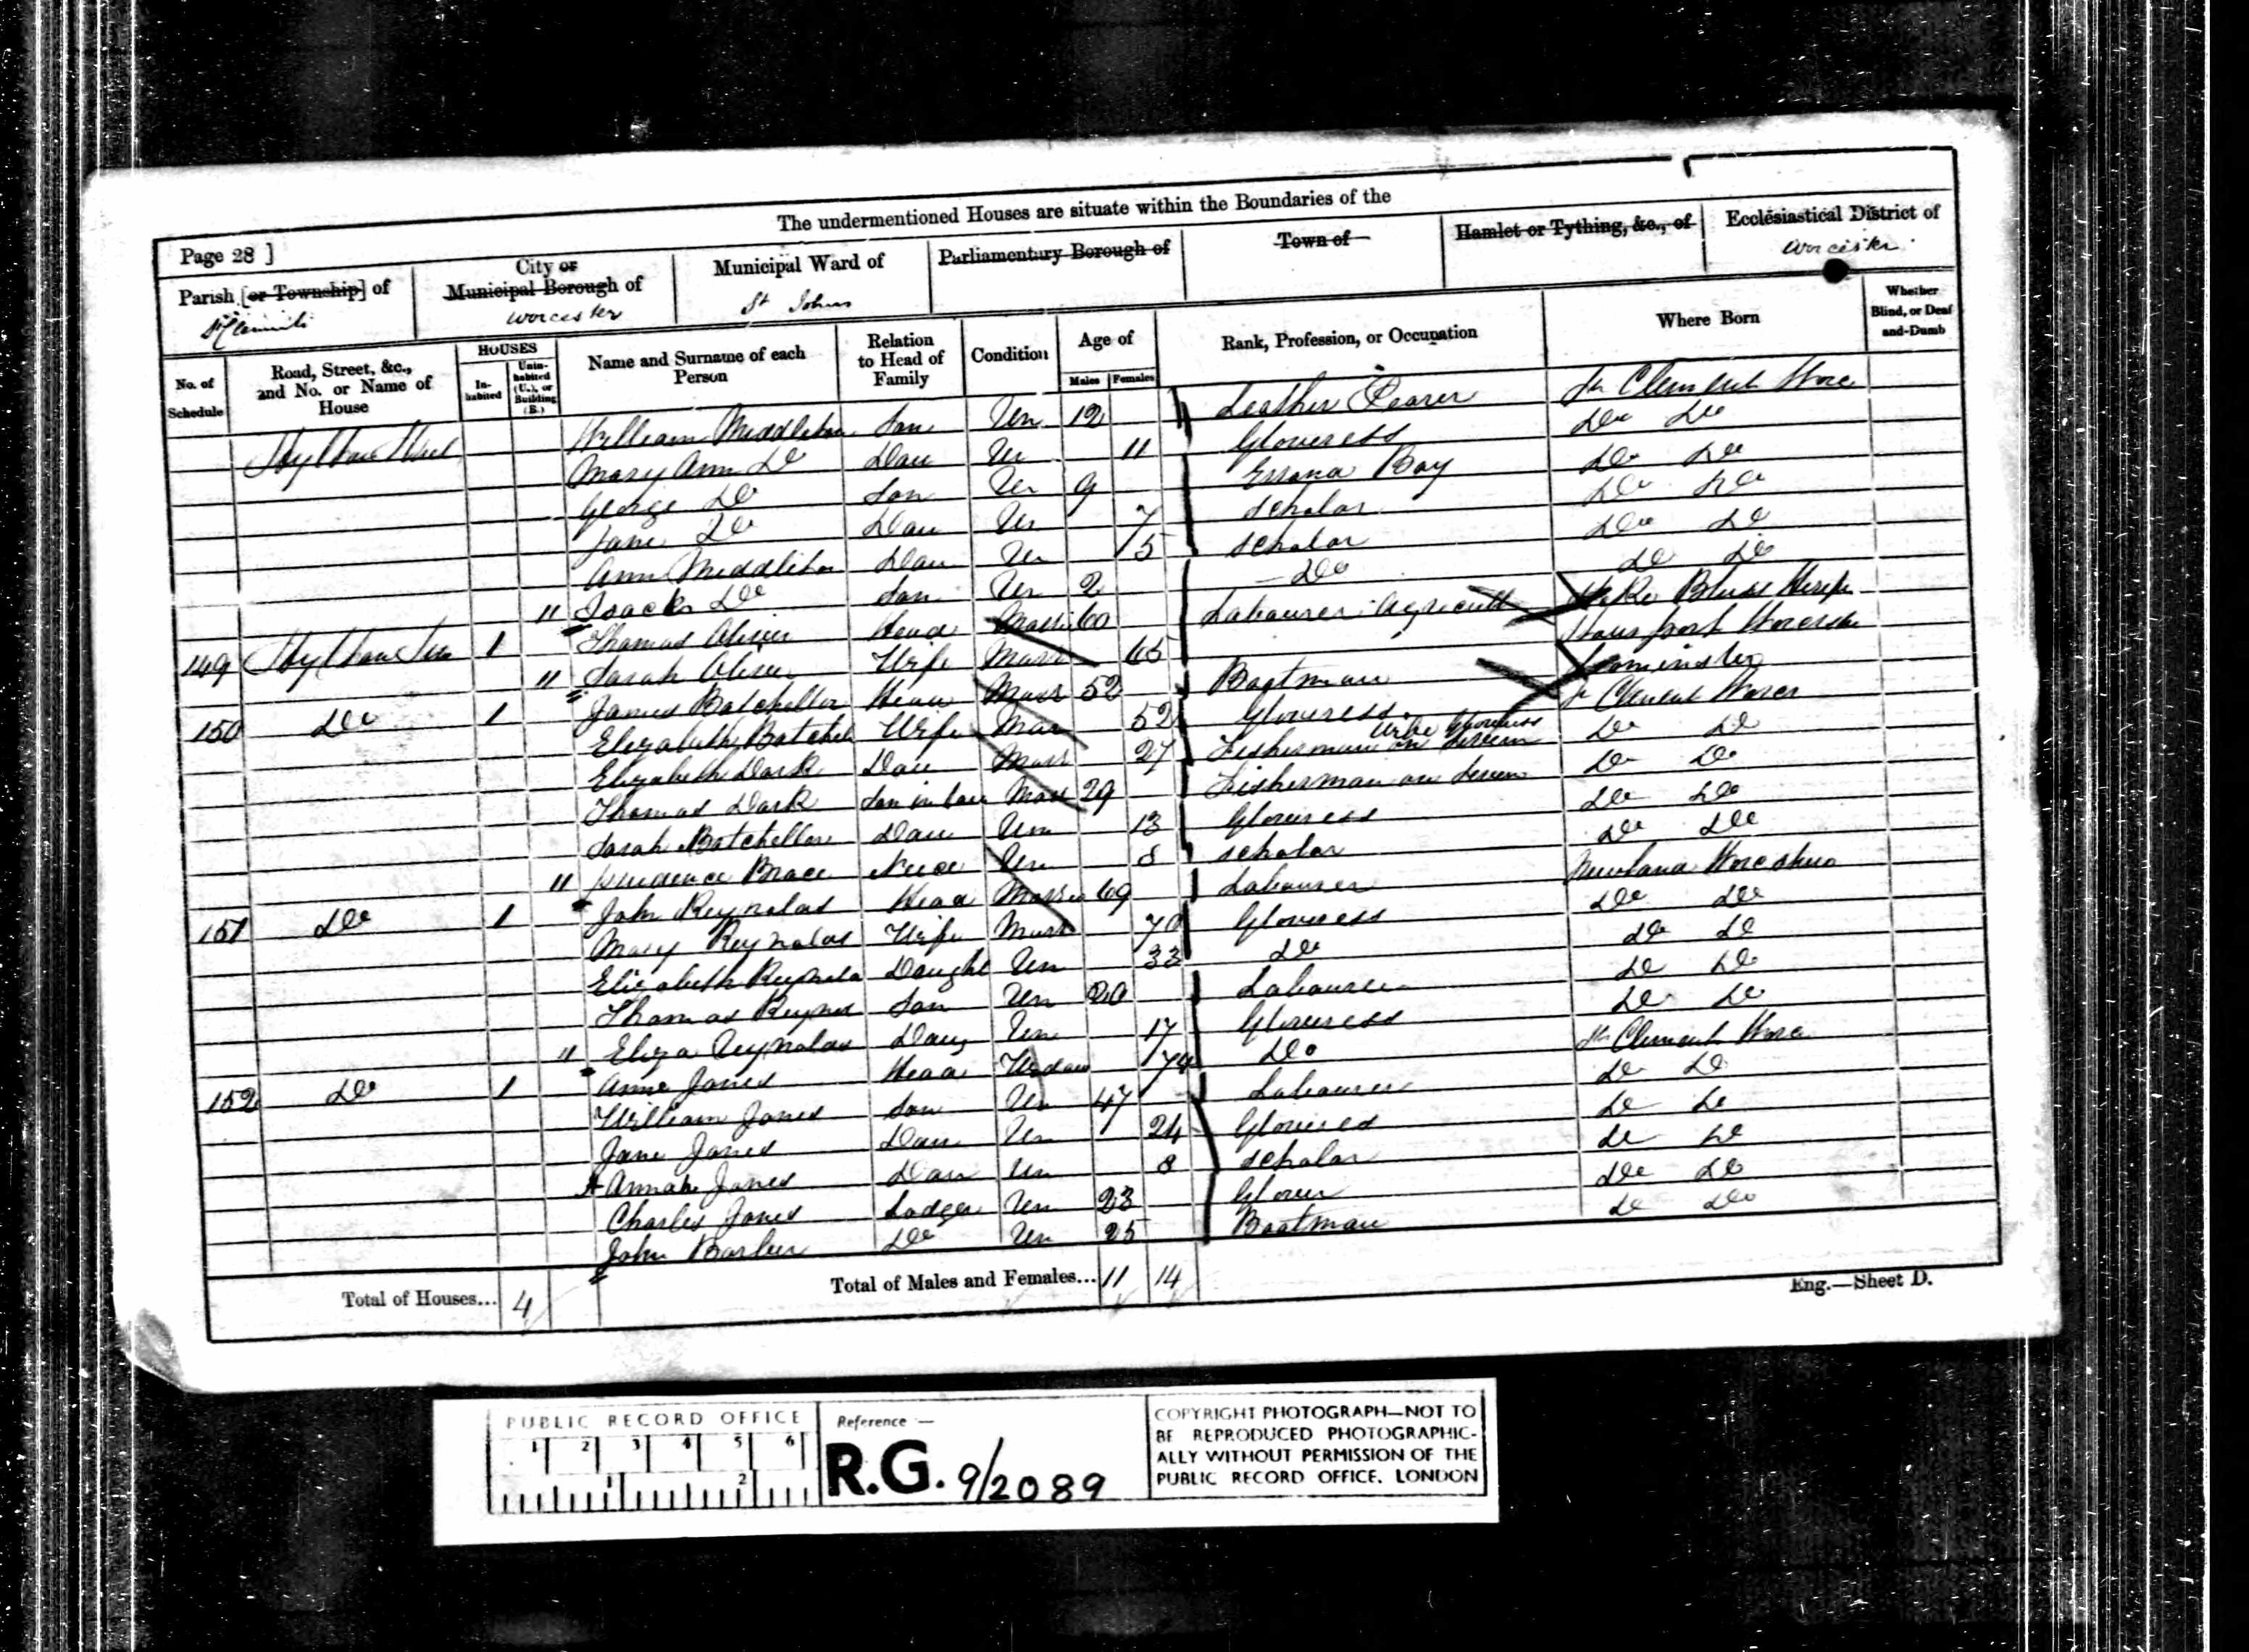 The undermentioned Houses are situate within the Boundaries of the
Page 28 ]
Parish [or Township] of
St Clements
City or Municipal Borough of
Worcester
Municipal Ward of
St Johns
Parliamentary Borough of
Town of
Hamlet or Tything, &c., of
Ecclesiastical District of
Worcester
No. of Schedule
Road, Street, &c., and No. or Name of House
HOUSES
Inhabited
Uninhabited (U.), or Building (B.)
Name and Surname of each Person
Relation to Head of Family
Condition
Age of
Males
Females
Rank, Profession, or Occupation
Where Born
Whether Blind, or Deaf-and-Dumb
Hylton Street William Middleton Son Un 12 Leather Parer St Clement Worc
Mary Ann Do Dau Un 11 Gloveress Do Do
George Do Son Un 9 Errand Boy Do Do
Jane Do Dau Un 7 Scholar Do Do
Ann Middleton Dau Un 5 Scholar Do Do
Isack Do Son Un 2 Do Do Do
149 1 Thomas Oliver Head 60 Labourer Agricult
Sarah Oliver Wife Marr 65
150 Do 1 James Batchellor Head Marr 52 Boatman Leominster
Elizabeth Batchel Wife Mar 52 Gloveress St Clement Worcs
Elizabeth Dark Dau Marr 27 Fisherman on Severn Wife Gloveress Do Do
Thomas Dark Son in law Marr 29 Fisherman on Severn Do Do
Sarah Batchellor Dau Un 13 Gloveress Do Do
Prudence Brace Niece Un 8 Scholar Do Do
151 Do 1 John Reynolds Head Married 69 Labourer Newland Worcshire
Mary Reynolds Wife Marr 70 Gloveress Do Do
Elizabeth Reynolds Daught Un 33 Do Do Do
Thomas Reynol Son Un 20 Labourer Do Do
Eliza Reynolds Daug Un 17 Gloveress Do Do
152 Do 1 Anne Jones Head Widow Do St Clement Worc
William Jones Son Un 47 Labourer Do Do
Jane Jones Dau Un 24 Gloveress Do Do
Annah Jones Dau Un 8 Scholar Do Do
Charles Jones Lodger Un 23 Glover Do Do
John Barber Do Un 25 Boatman Do Do
Total of Houses... 4
Total of Males and Females... 11 14
Eng.—Sheet D.
PUBLIC RECORD OFFICE
1 2 3 4 5 6
1 2
Reference :—
R.G. 9/2089
COPYRIGHT PHOTOGRAPH—NOT TO
BE REPRODUCED PHOTOGRAPHIC-
ALLY WITHOUT PERMISSION OF THE
PUBLIC RECORD OFFICE, LONDON